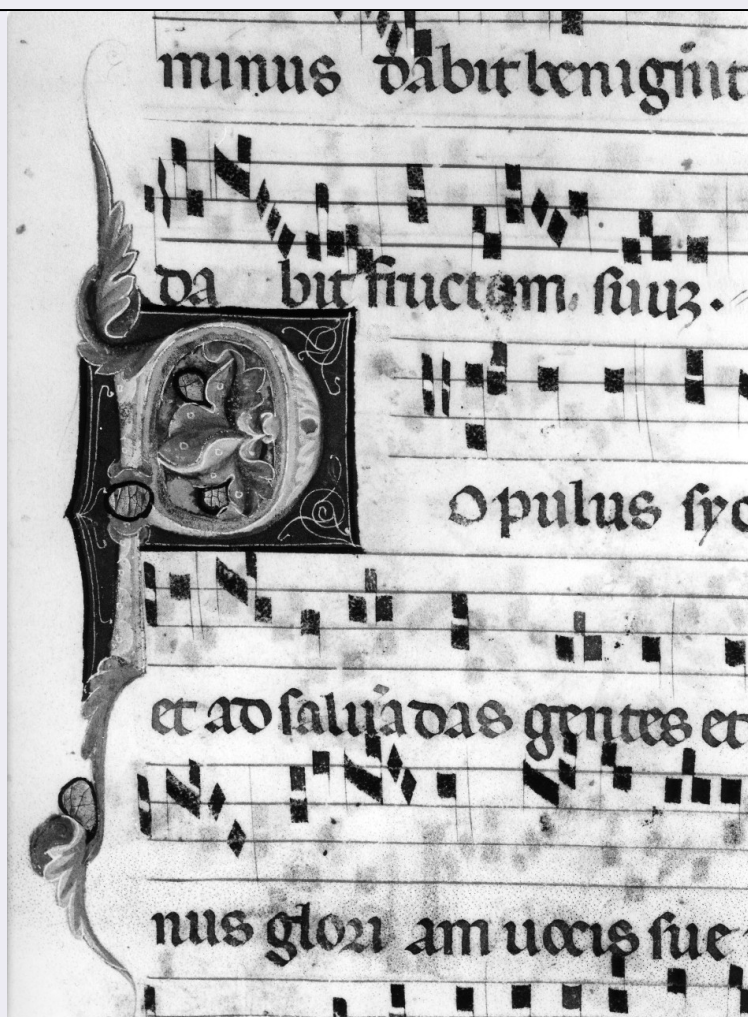 minus dabit benignit
da bit fructum suuʒ.
Populus syo
et ad saluādas gentes et
nus glori am uocis sue